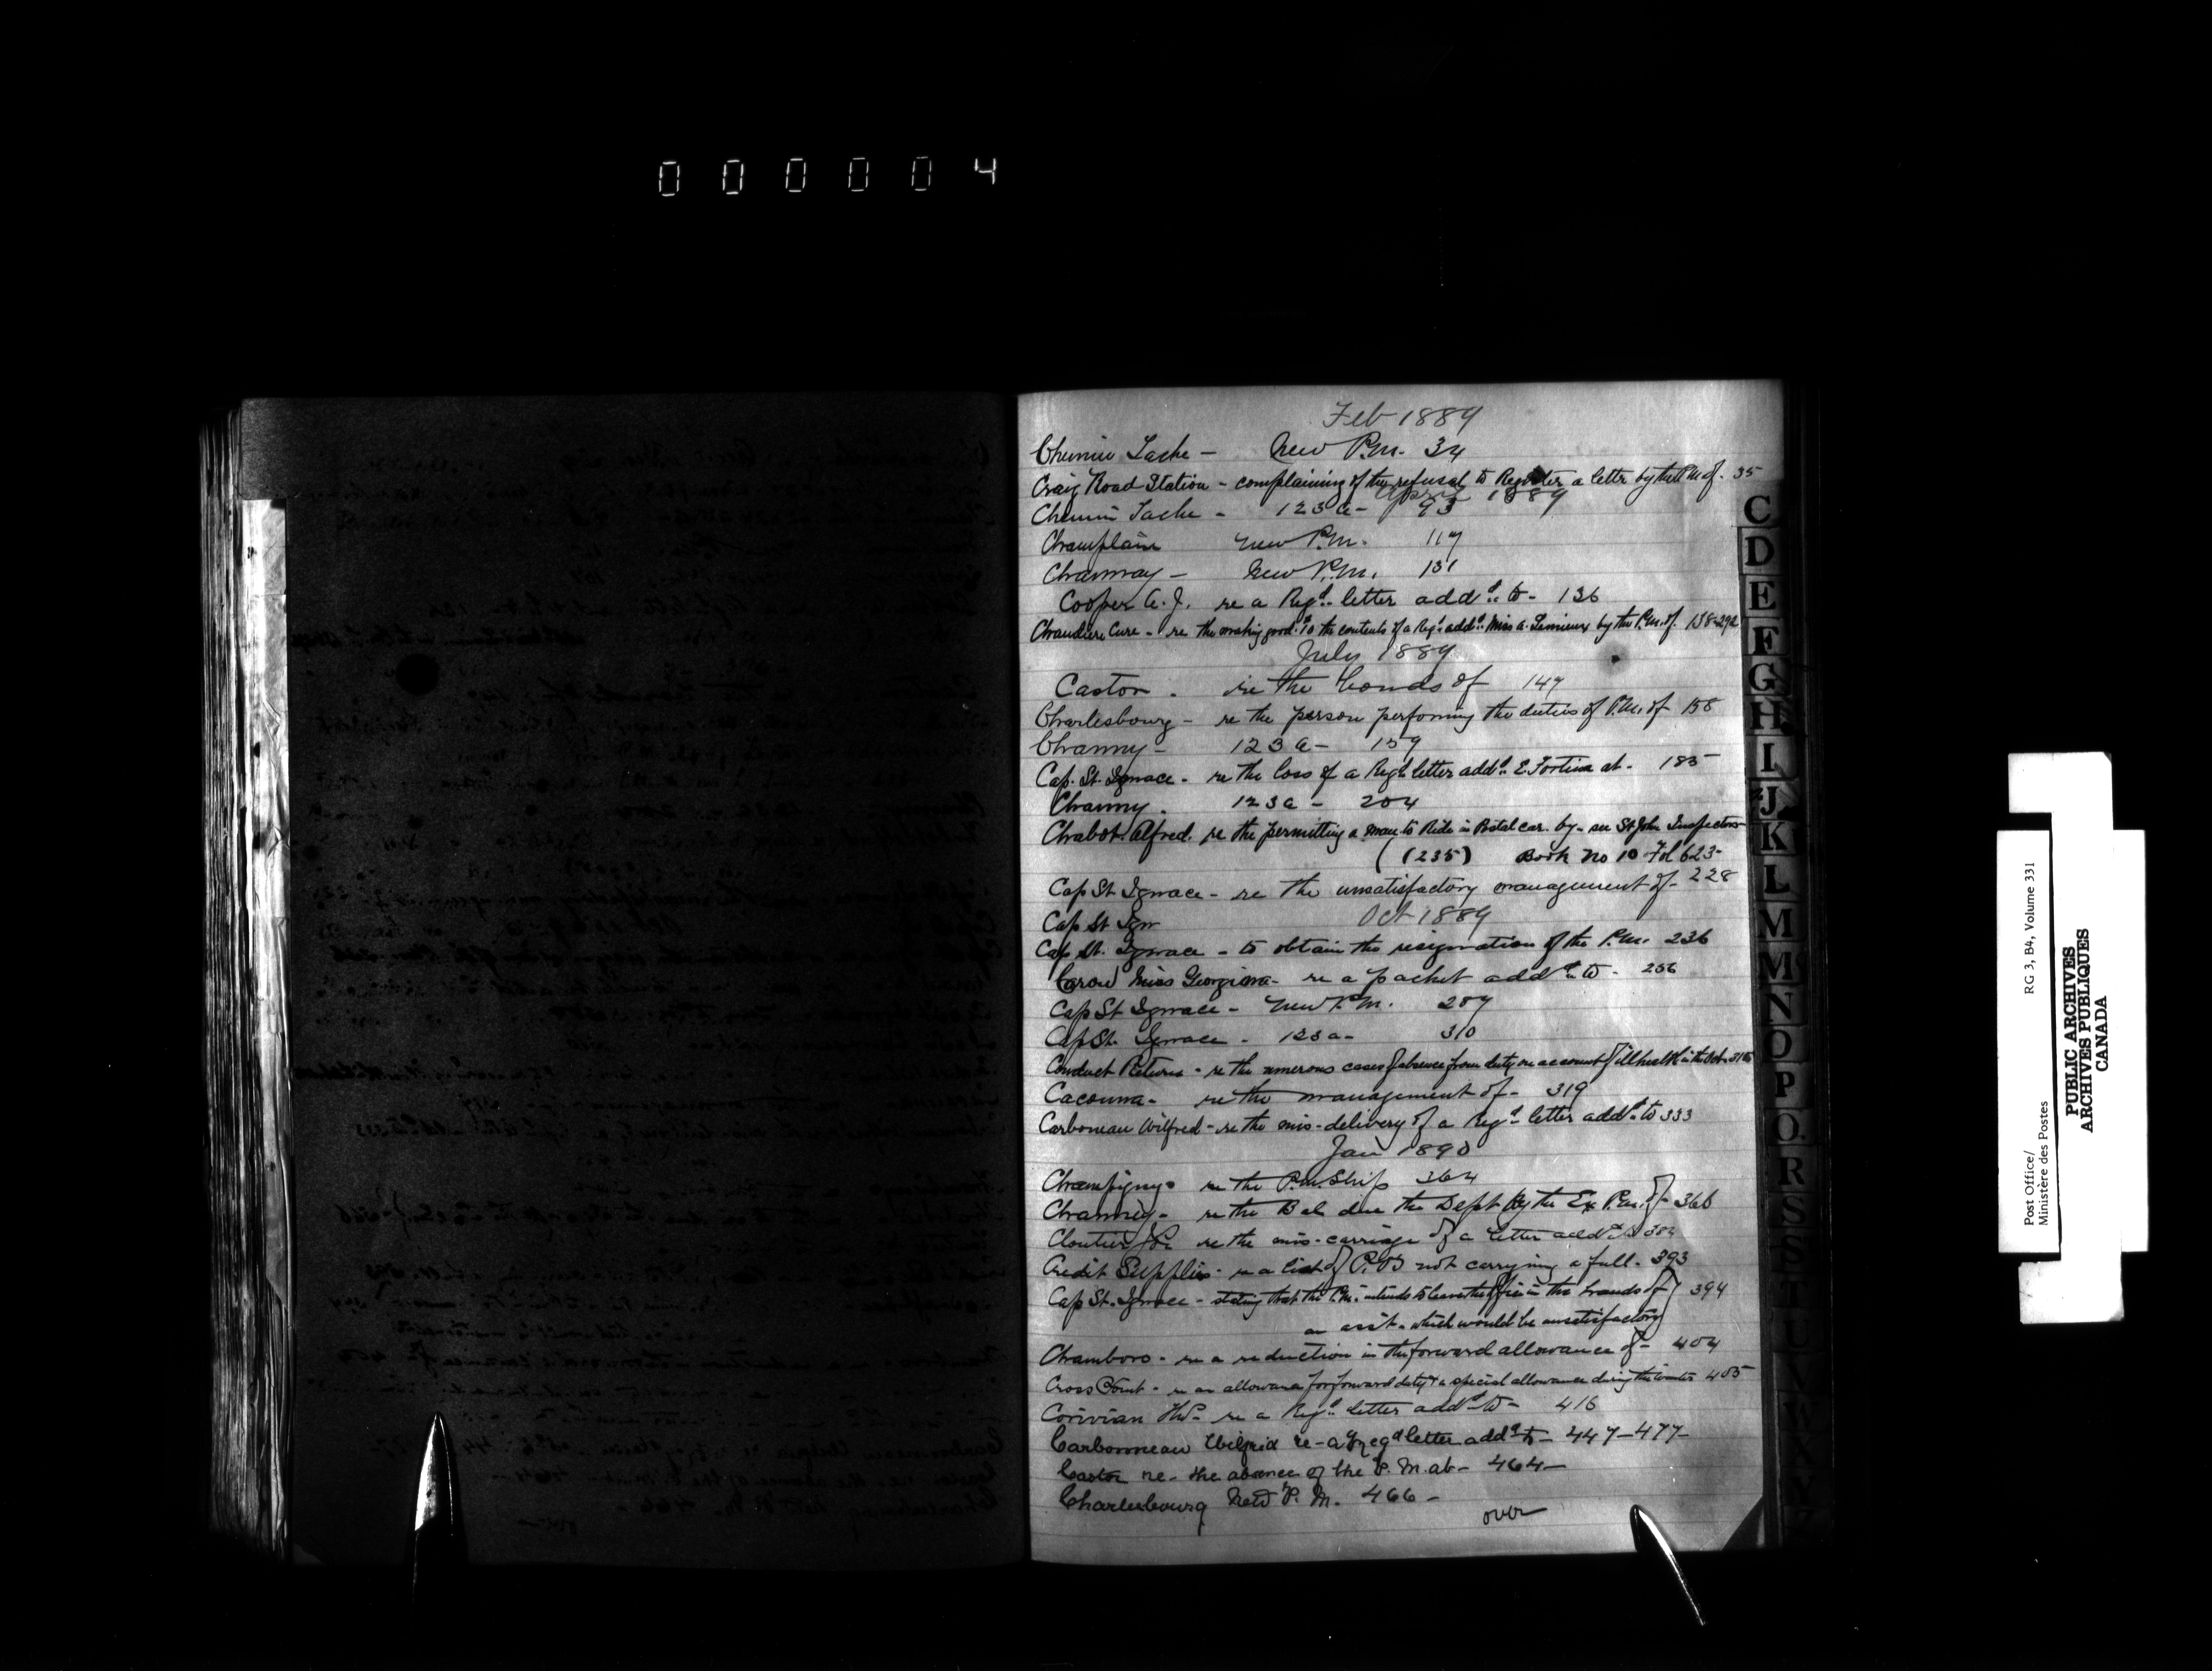 000004
Feb 1889
Chemin Tache - New P.M. 34
Craig Road Station - complaining of the refusal to Register a letter by the P.M. of. 35
April 1889
Chemin Tache - 123a - 93
Champlain New P.M. 117
Channay - New P.M. 131
Cooper A.J. re a Regd. letter addd. to - 136
Chaudiere Curve - re the making good to the contents of a Regd. addd. Miss A. Lemieux by the P.M. of. 138-292
July 1889
Caston. re the bonds of 147
Charlesbourg - re the person perfoming the duties of P.M. of 158
Channy - 123a - 159
Cap. St. Ignace - re the loss of a Regd. letter addd. E. Fortin at - 185
Channy. 123a - 204
Chabot Alfred. re the permitting a man to Ride in Postal car. by - see St John Inspectors
(235) Book No 10 Fol 623
Cap St Ignace - re the unsatisfactory management of - 228
Cap St Ign Oct 1889
Cap St. Ignace - to obtain the resignation of the P.M. 236
Caron Miss Georgiana - re a packet addd. to - 256
Cap St Ignace - New P.M. 287
Cap St. Ignace - 123a - 310
Conduct Returns - re the numerous cases of absence from duty on account of ill health in the Oct. 315
Cacouna - re the management of - 319
Carboneau Wilfred - re the mis-delivery of a Regd. letter addd. to 333
Jan 1890
Champigny - re the P.M. Ship 364
Channey - re the Bal due the Dept by the Ex P.M. of - 366
Cloutier re the mis-carriage of a letter addd. to
Credit Supplies - re a list of P.O's not carrying a full - 393
Cap St. Ignace - stating that the P.M. intends to leave the office in the hands of 394
an asst. which would be unsatisfactory
Chambors - re a reduction in the forward allowance of - 404
Cross Point - re an allowance for forward duty & a special allowance during the winter 405
Corivian re a Regd. letter addd. to - 416
Carbonneau Wilfrid re - a regd letter addd. to - 447-477-
Castor re - the absence of the P.M. at - 464-
Charlesbourg New P.M. 466 -
over
C
D
E
F
G
H
I
J
K
L
M
Mc
N
O
P
Q.
R
S
S
T
U
V
W
Post Office/
Ministère des Postes
RG 3, B4, Volume 331
PUBLIC ARCHIVES
ARCHIVES PUBLIQUES
CANADA